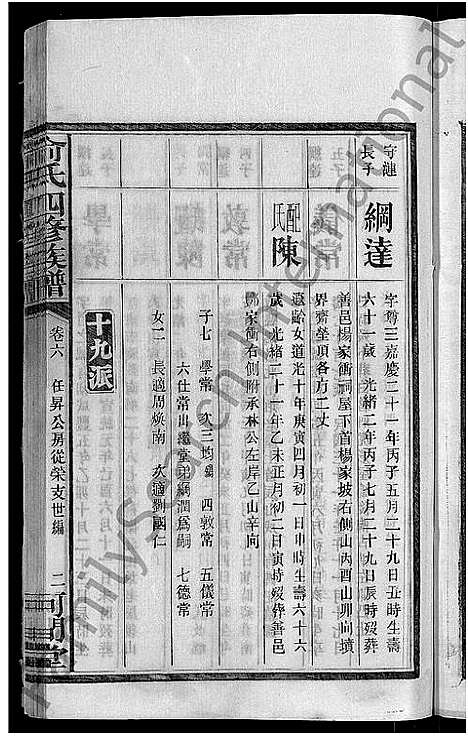 守漣
長子
綱達
字尊三嘉慶二十一年丙子五月二十九日丑時生壽
六十一歲 光緒二年丙子七月二十九日辰時歿葬
善邑楊家衝祠屋下首楊家坡右側山丙酉山卯向墳
界齊塋頂各方二丈
配陳氏
淑齡女道光十年庚寅四月初一日申時生壽六十六
歲 光緒二十一年乙未正月初二日寅時歿葬善邑
鄧家衝右側附承林公左岸乙山辛向
子七 學常 次三均 四敦常 五儀常
六仕常出繼堂弟綱潤爲嗣 七德常
女二 長適周煥南 次適劉國仁
十九派
俞氏四修族譜
卷六 任昇公房從榮支世編 二
河間堂